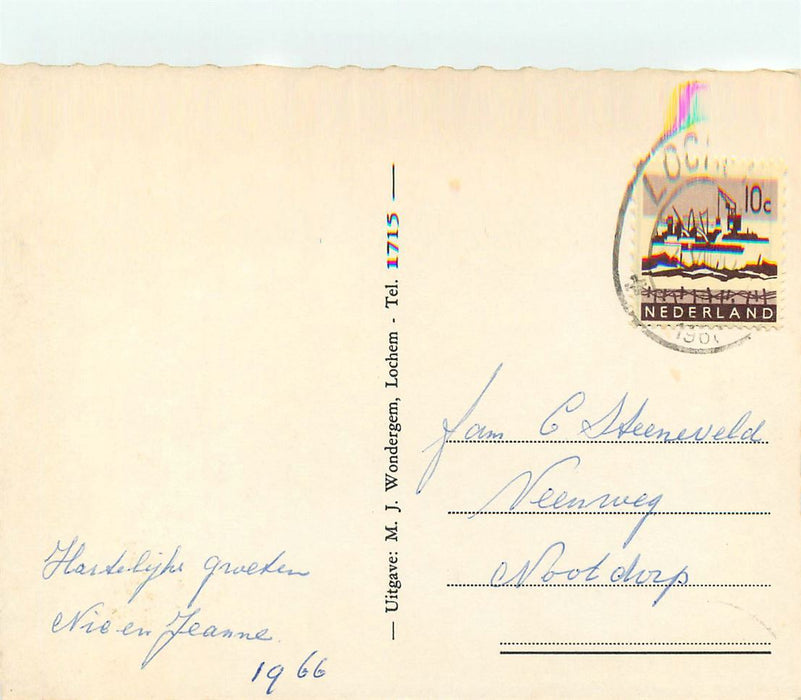 Hartelijke groeten
Nic en Jeanne
1966
Uitgave: M. J. Wondergem, Lochem - Tel. 1715
LOCHEM
10c
NEDERLAND
fam C Steeneveld
Veenweg
Nootdorp